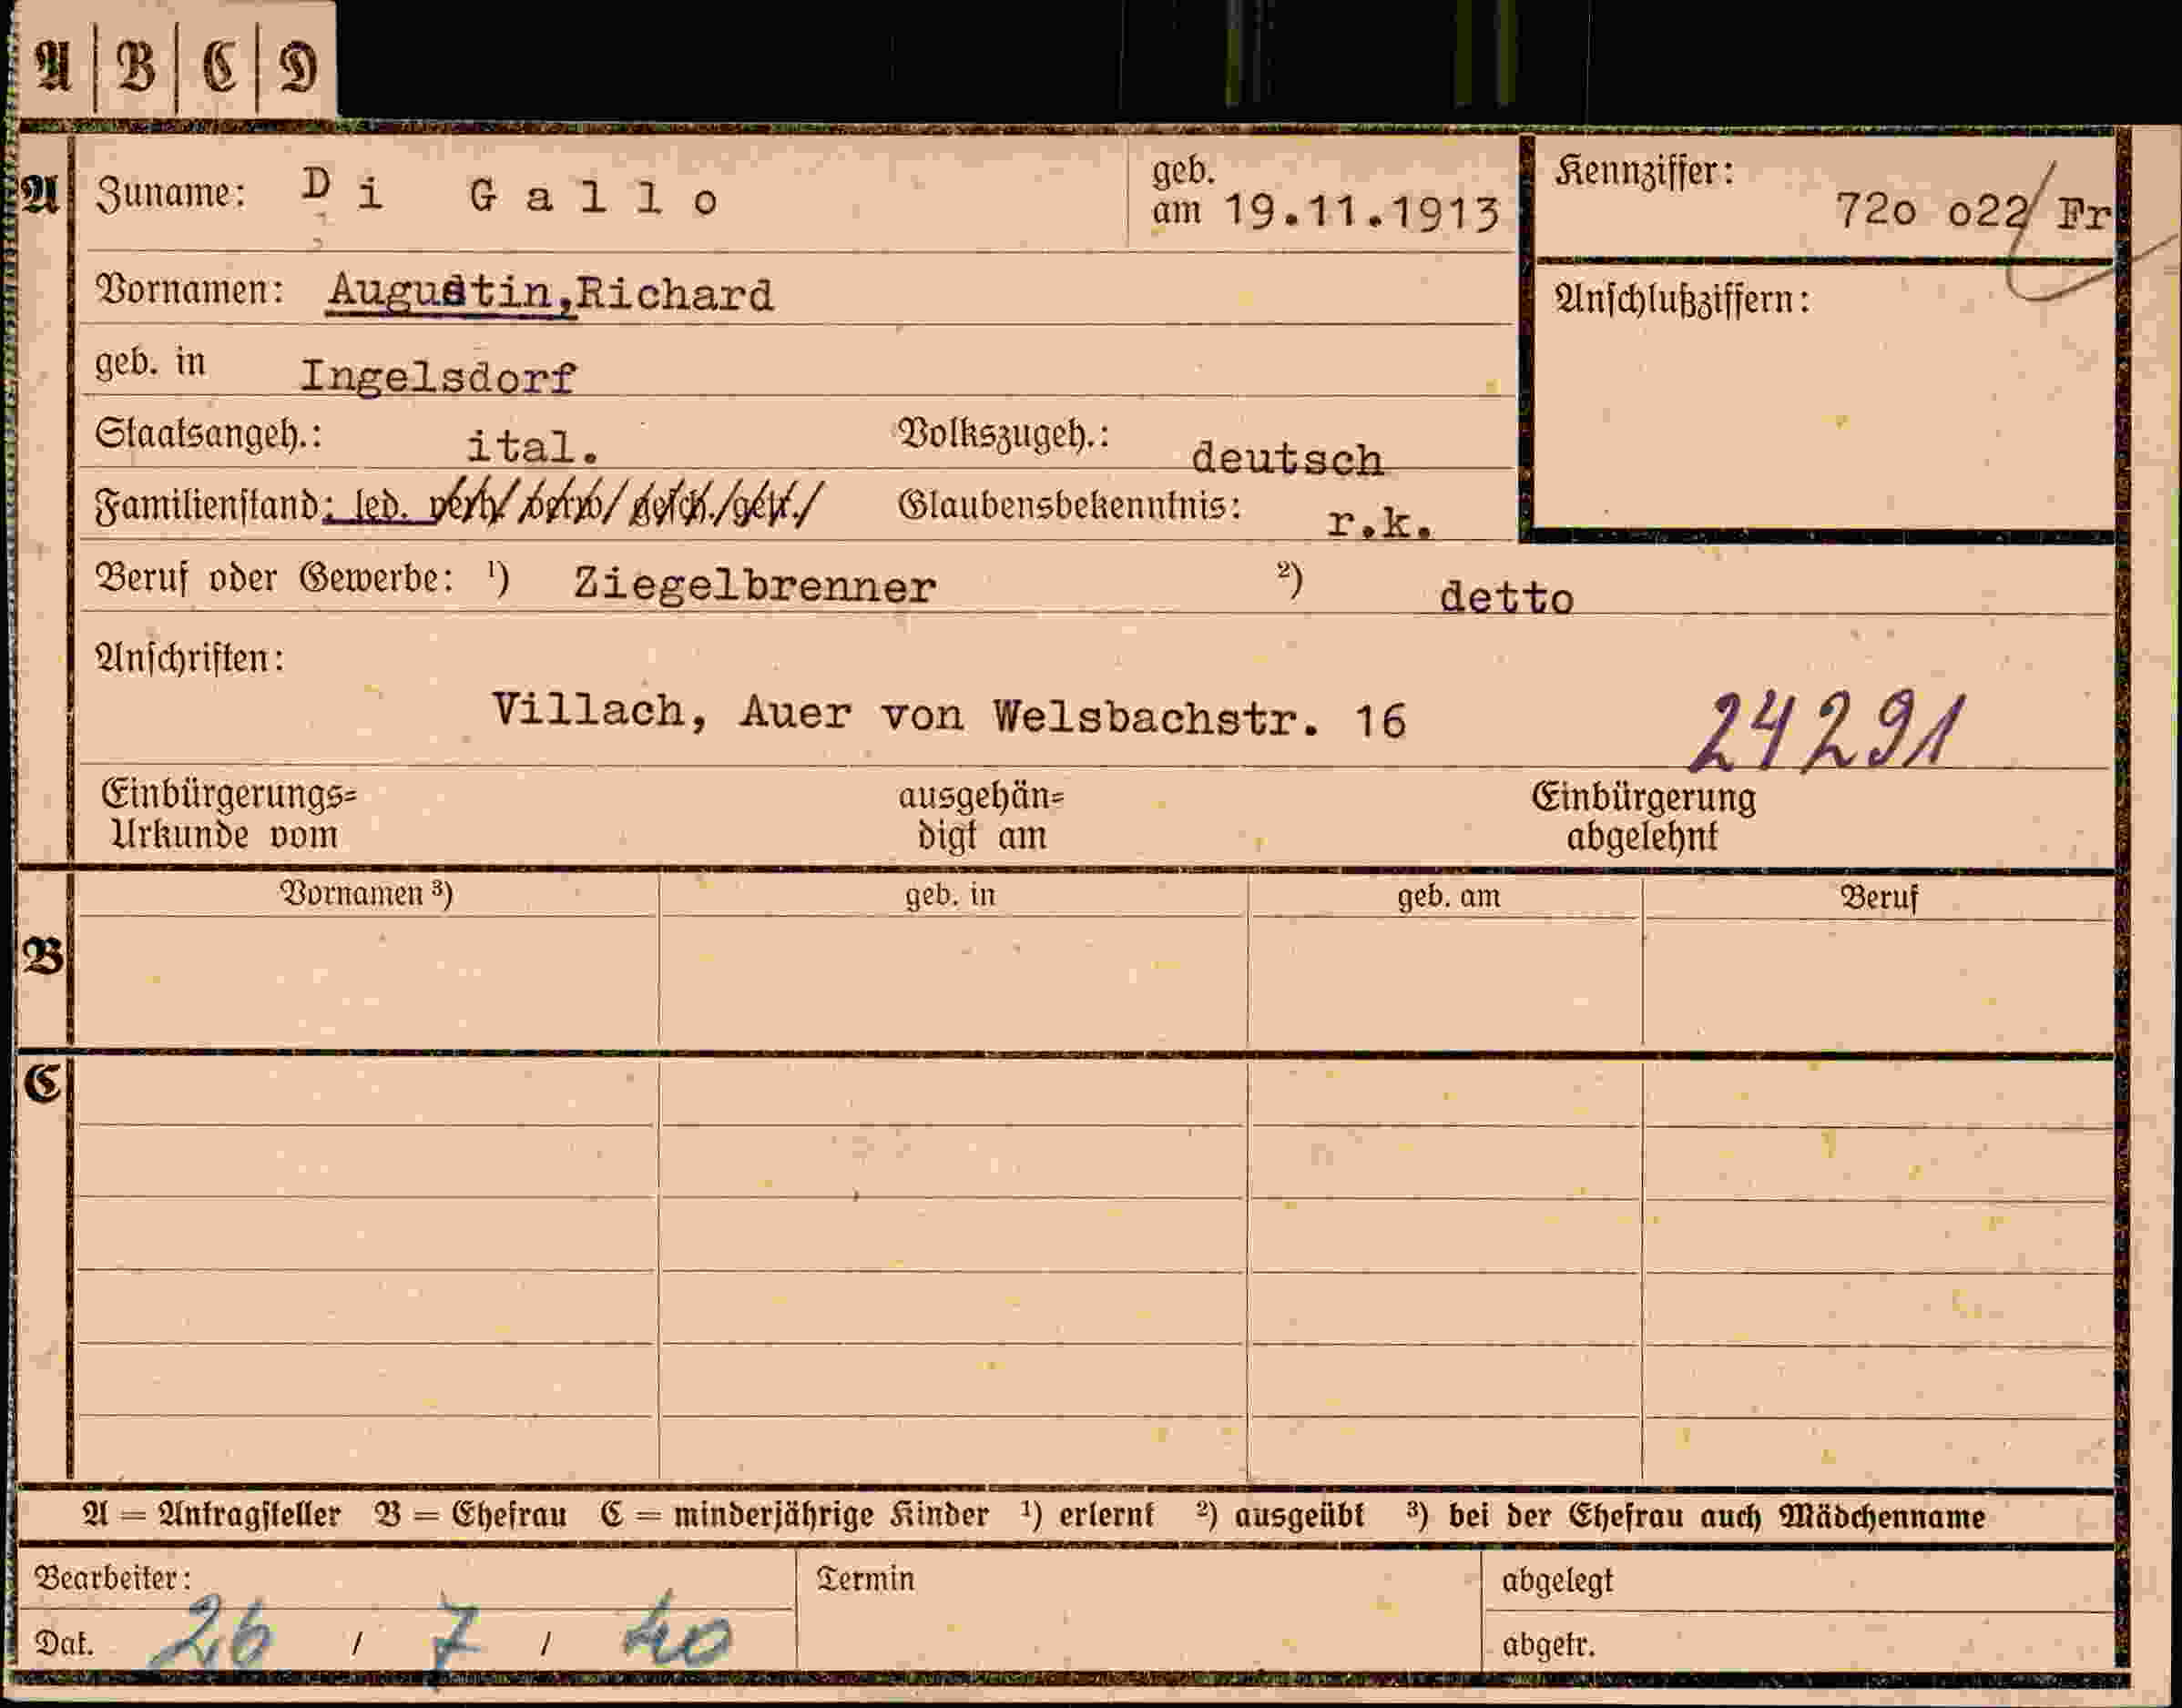 A | B | C | D
A Zuname: Di Gallo geb. am 19.11.1913 Kennziffer: 72o o22/Fr
Vornamen: Augustin,Richard Anschlußziffern:
geb. in Ingelsdorf
Staatsangeh.: ital. Volkszugeh.: deutsch
Familienstand: led. verh/ verw/ gesch./getr./ Glaubensbekenntnis: r.k.
Beruf oder Gewerbe: ¹) Ziegelbrenner ²) detto
Anschriften:
Villach, Auer von Welsbachstr. 16 24291
Einbürgerungs= ausgehän= Einbürgerung
Urkunde vom digt am abgelehnt
Vornamen ³) geb. in geb. am Beruf
B
C
A = Antragsteller B = Ehefrau C = minderjährige Kinder ¹) erlernt ²) ausgeübt ³) bei der Ehefrau auch Mädchenname
Bearbeiter: Termin abgelegt
Dat. 26 / 7 / 40 abgetr.